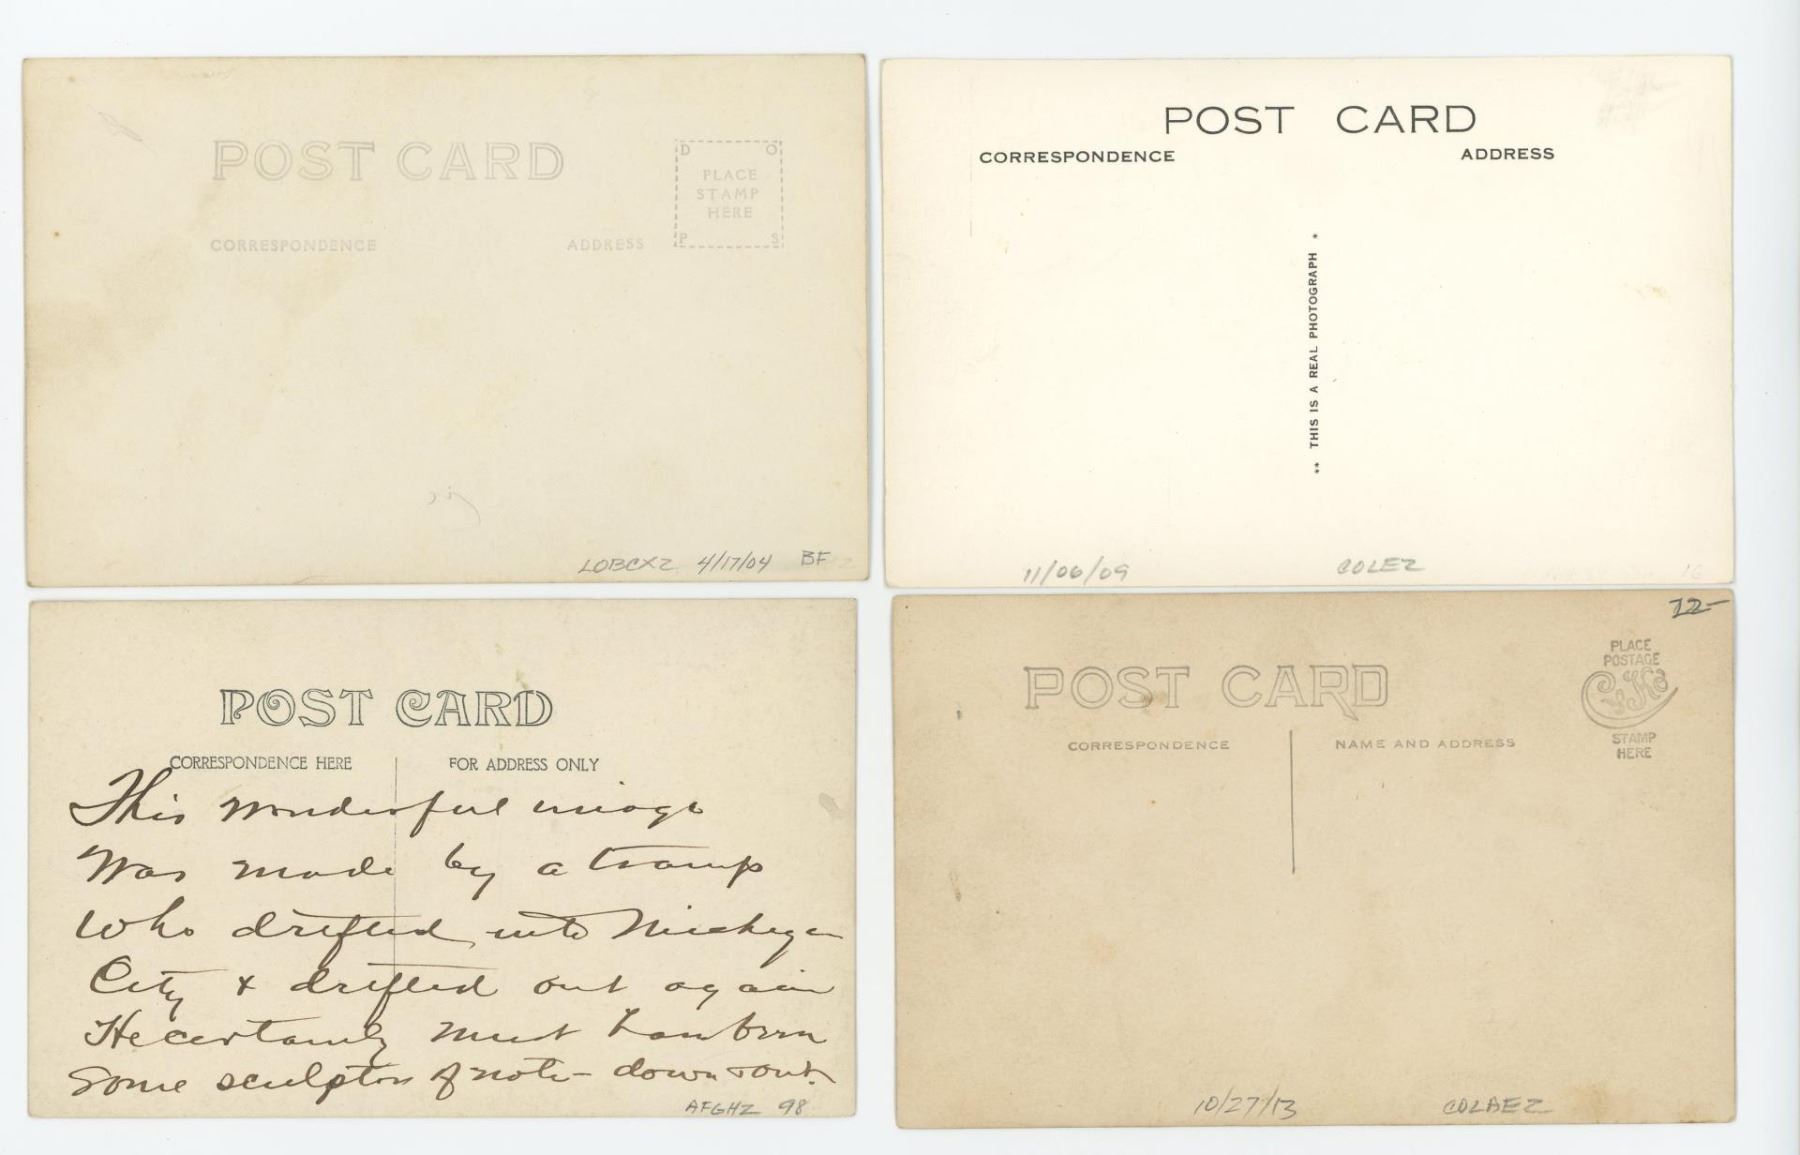 POST CARD
D O
PLACE
STAMP
HERE
P S
CORRESPONDENCE ADDRESS
LOBCXZ 4/17/04 BF
POST CARD
CORRESPONDENCE ADDRESS
** THIS IS A REAL PHOTOGRAPH *
11/06/09 COLEZ
16
POST CARD
CORRESPONDENCE HERE FOR ADDRESS ONLY
This wonderful image
Was made by a tramp
who drifted into Michigan
City & drifted out again
He certainly must have been
some sculptor of note - down & out.
AFGHZ 98
12-
POST CARD
PLACE
POSTAGE
STAMP
HERE
CORRESPONDENCE NAME AND ADDRESS
10/27/13 COLAEZ